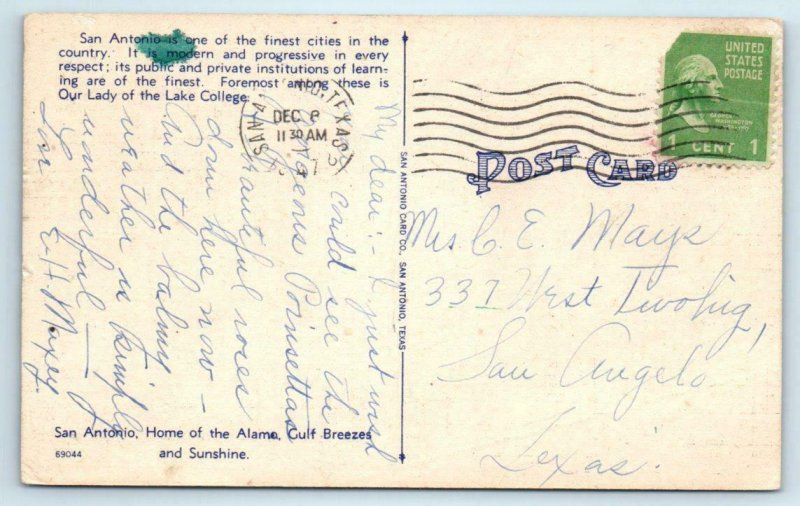 San Antonio is one of the finest cities in the
country. It is modern and progressive in every
respect; its public and private institutions of learn-
ing are of the finest. Foremost among these is
Our Lady of the Lake College.
My dear:- I just wish
I could see the
Poinsettas
roses
down here now -
And the balmy
weather is simply
wonderful -
Love
E H Maxey
San Antonio, Home of the Alamo, Gulf Breezes
and Sunshine.
69044
SAN ANTONIO CARD CO., SAN ANTONIO, TEXAS
SAN A
TEXAS
DEC 8
11 30 AM
POST CARD
UNITED
STATES
POSTAGE
GEORGE
WASHINGTON
1 CENT 1
Mrs C. E. Mays
337 West Twohig,
San Angelo
Texas.